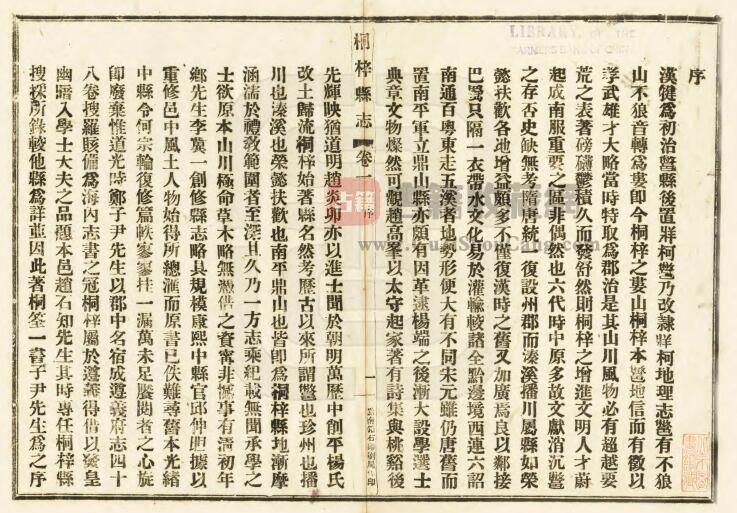 序
漢犍爲初治鄨縣後置牂柯鄨乃改隸牂柯地理志鄨有不狼
山不狼音轉爲婁卽今桐梓之婁山桐梓本鄨地信而有徵以
孝武雄才大略當時特取爲郡治是其山川風物必有超越要
荒之表著磅礴鬱積久而發舒然則桐梓之增進文明人才蔚
起成南服重要之區非偶然也六代時中原多故文獻消沉鄨
之存否史缺無考隋唐統一復設州郡而溱溪播川屬縣如榮
懿扶歡各地增益頗多不僅復漢時之舊又加廣爲良以鄰接
巴蜀只隔一衣帶水文化易於灌輸較諸全黔邊境西連六詔
南通百粵東走五溪者地勢形便大有不同宋元雖仍唐舊而
置南平軍立鼎山縣亦頗有因革逮楊端之後漸大設學選士
典章文物燦然可觀趙高峯以太守起家著有詩集與桃谿後
桐梓縣志
卷一
序
一
先輝映猶道明趙炎卯亦以進士聞於朝明萬歷中創平楊氏
改土歸流桐梓始著縣名然考歷古以來所謂鄨也珍州也播
川也溱溪也榮懿扶歡也南平鼎山也皆卽爲桐梓縣地漸摩
涵濡於禮教範圍者至深且久乃一方志乘紀載無聞承學之
士欲原本山川極命草木略無憑借之資寧非憾事有清初年
鄉先生李冀一創修縣志略具規模康熙中縣官邱仲胆據以
重修邑中風土人物始得所總滙而原書已佚難尋舊本光緒
中縣令何宗輪復修篇軼寥寥挂一漏萬未足饜閱者之心旋
卽廢棄惟道光時鄭子尹先生以郡中名宿成遵義府志四十
八卷搜羅賅備爲海內志書之冠桐梓屬於遵義得借以發皇
幽隱入學士大夫之品題本邑趙石知先生其時專任桐梓縣
搜採所錄較他縣爲詳並因此著桐筌一書子尹先生爲之序
LIBRARY OF THE
FARMERS BANK OF CHINA
古籍
www.GuJiShouCang.com